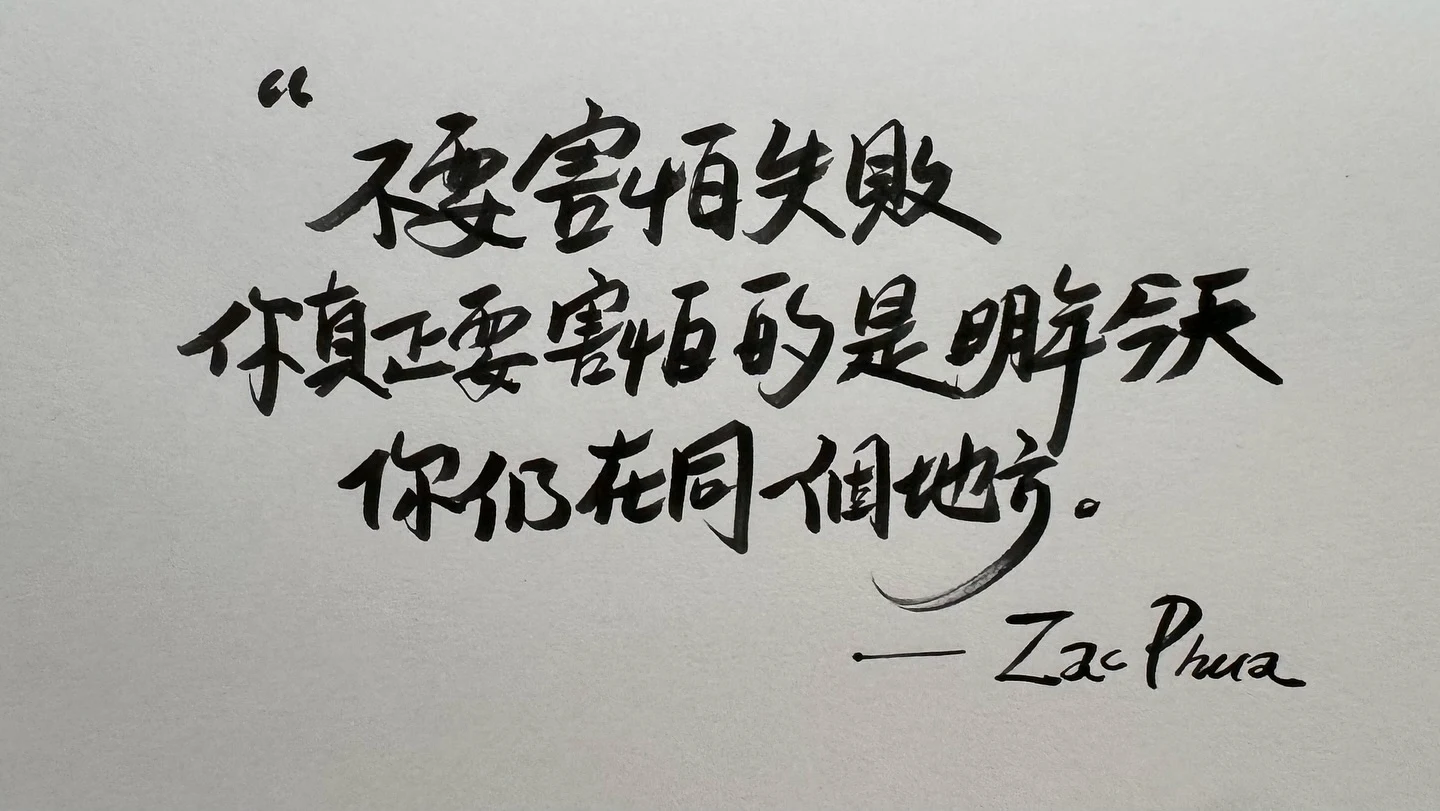 “
不要害怕失敗
你真正要害怕的是明年今天
你仍在同一個地方。
— Zac Phua